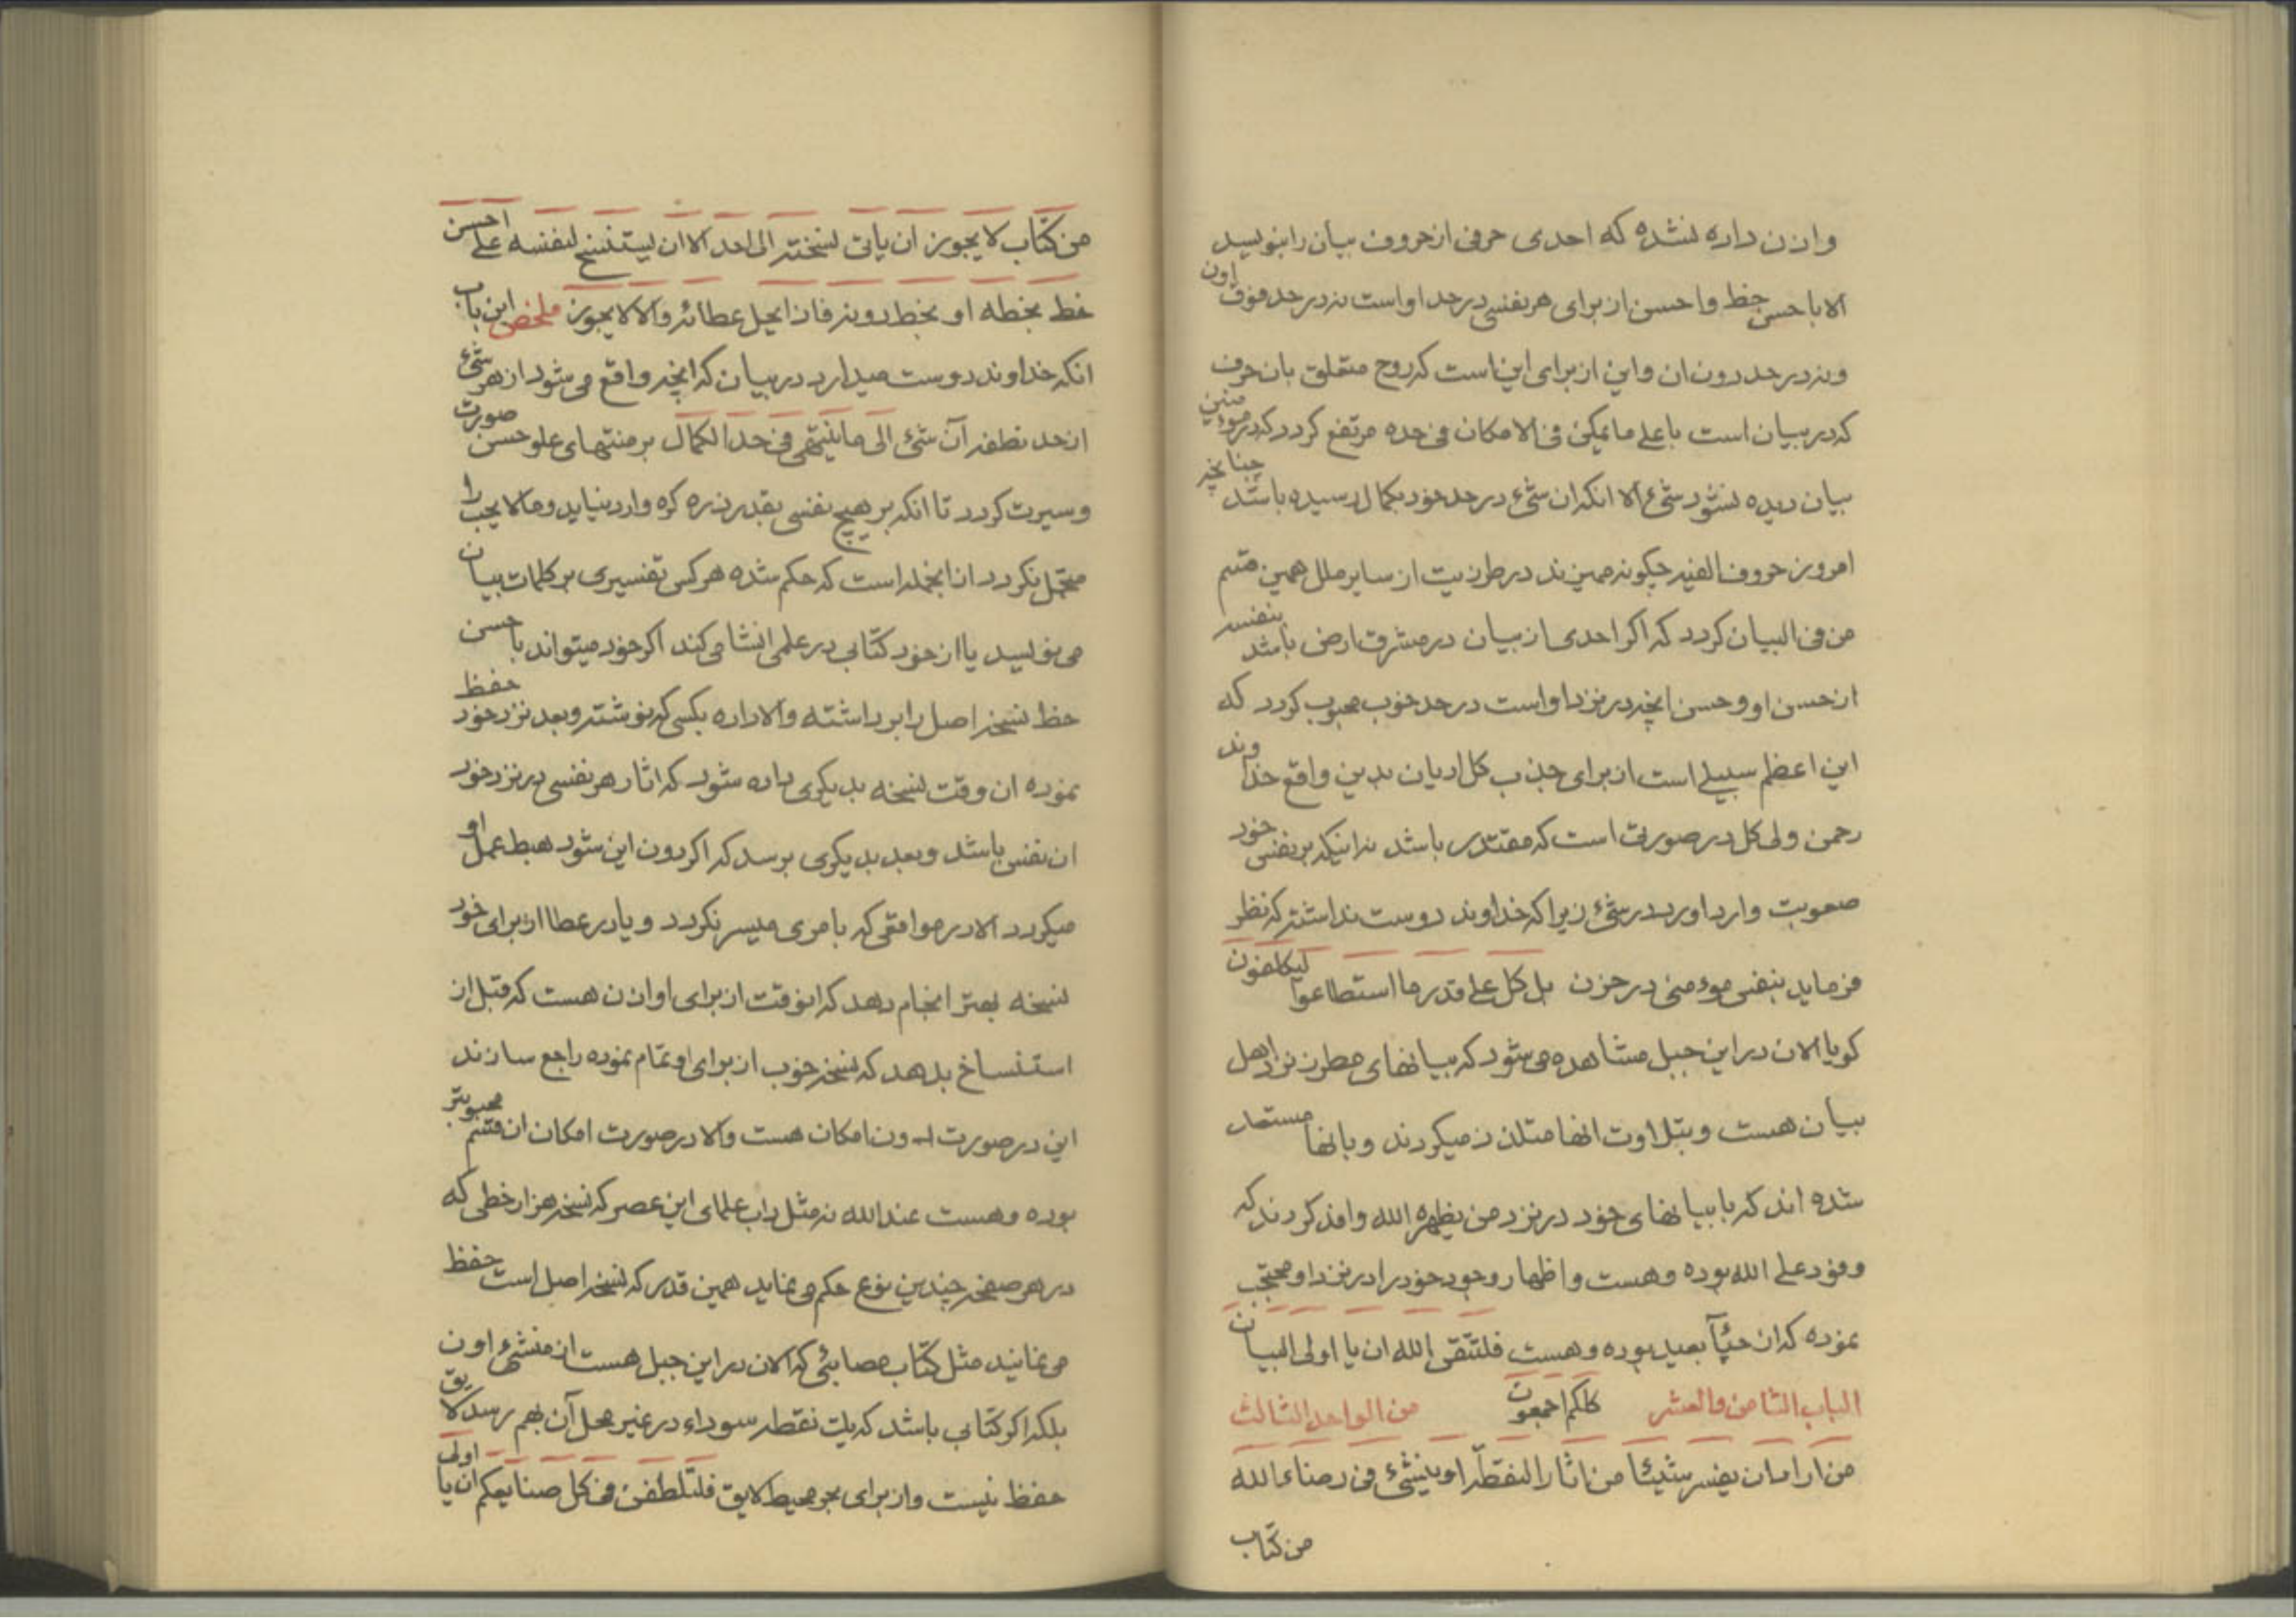 واذن داده نشده که احدی حرفی از حروف بیان را بنویسد
الا باحسن خط واحسن از برای هر نفسی در حد او است نه در حد فوق اون
ونه در حد دون ان واین از برای این است که روح متعلق بان حرف
که در بیان است باعلی ما یمکن فی الامکان فی حده مرتفع کردد که در مؤمنین
بیان دیده نشود شیء الا انکه ان شیء در حد خود بکمال رسیده باشد چنانچه
امروز حروف الفیه چکونه ممیزند در طرزیت از سایر ملل همین قسم
من فی البیان کردد که اکر احدی از بیان در مشرق ارض باشد بنفسه
از حسن او وحسن انچه در نزد او است در حد خوب محبوب کردد که
این اعظم سبیلی است از برای جذب کل ادیان بدین واقع خداوند
رحمن ولی کل در صورتی است که مقتدر باشد نه اینکه بر نفس خود
صعوبت وارد اورد در شیء زیرا که خداوند دوست نداشته که نظر
فرماید بنفس مؤمنی در حزن بل کل علی قدر ما استطاعوا لیکلفون
کویا الان در این جبل مشاهده می شود که بیانهای مطرز نزد اهل
بیان هست وبتلاوت انها متلذذ میکردند وبانها مستعد
شده اند که با بیانهای خود در نزد من یظهره الله وافد کردند که
وفود علی الله بوده وهست واظهار وجود خود را در نزد او محتجب
نموده که ان حیّاً بعید بوده وهست فلتتقی الله ان یا اولی البیان
الباب الثامن والعشر کلکم اجمعون من الواحد الثالث
من اراد ان یفسر شیئا من اثار النقطة او ینشیء فی رضاء الله
من کتاب
من کتاب لا یجوز ان یاتی نسخته الی احد الا ان یستنسخ لنفسه علی احسن
خط بخطه او بخط دونه فاذا یحل عطائه والا لا یجوز ملخص این باب
انکه خداوند دوست میدارد در بیان که انچه واقع می شود از هر شیء
از حد نطفه آن شیء الی ما ینتهی فی حد الکمال بر منتهای علو حسن صورت
وسیرت کردد تا انکه بر هیچ نفسی بقدر ذره کره وارد نیاید وما لا یحب را
متحمل نکردد از انجمله است که حکم شده هر کس تفسیری بر کلمات بیان
می نویسد یا از خود کتابی در علمی انشا می کند اکر خود میتواند باحسن
خط نسخه اصل را برداشته والا داده بکسی که نوشته وبعد نزد خود حفظ
نموده ان وقت نسخه بدیکری داده شود که اثار هر نفسی در نزد خود
ان نفس باشد وبعد بدیکری برسد که اکر دون این شود هبط عمل او
میکردد الا در مواقعی که بامری میسر نکردد ویا در عطا از برای خود
نسخه بهتر انجام دهد که انوقت از برای او اذن هست که قبل از
استنساخ بدهد که نسخه خوب از برای او تمام نموده راجع سازند
این در صورت دون امکان هست والا در صورت امکان ان قسم محبوبتر
بوده وهست عند الله نه مثل داب علمای این عصر که نسخه هزار خطی که
در هر صفحه چندین نوع حکم می نماید همین قدر که نسخه اصل است حفظ
می نمایند مثل کتاب مصابئی که الان در این جبل هست از منشیء اون
بلکه اکر کتابی باشد که یک نقطه سوداء در غیر محل آن بهم رسد لایق
حفظ نیست واز برای بحر محیط لایق فلتلطفن فی کل صنایعکم ان یا اولی